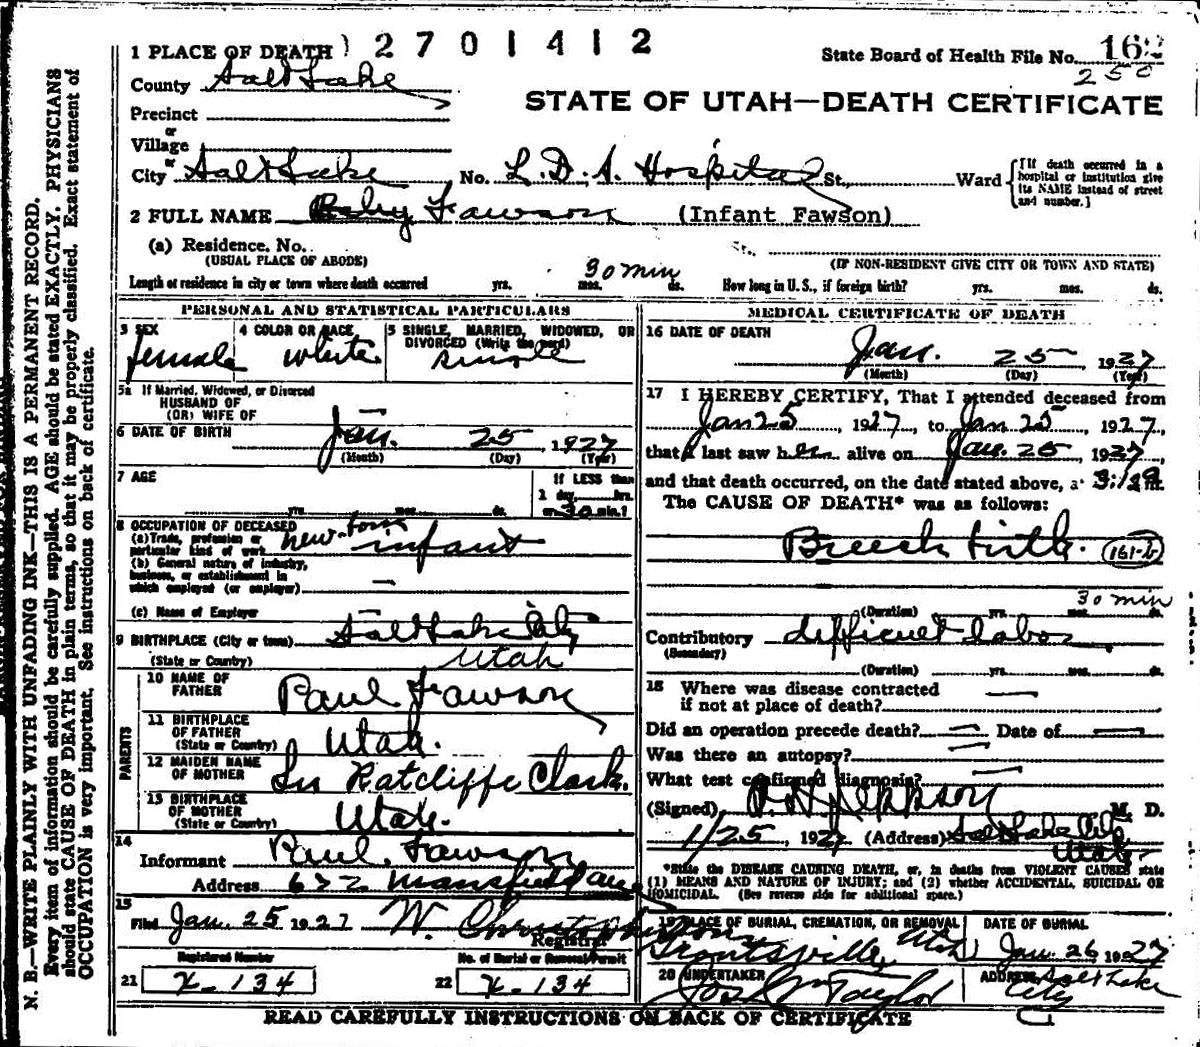 1 PLACE OF DEATH 2 7 0 1 4 1 2
State Board of Health File No. 162
250
County Salt Lake
STATE OF UTAH—DEATH CERTIFICATE
Precinct
or
Village
or
City Salt Lake No. L.D.S. Hospital St., Ward
[If death occurred in a hospital or institution give its NAME instead of street and number.]
2 FULL NAME Baby Fawson (Infant Fawson)
(a) Residence. No. St.,
(USUAL PLACE OF ABODE) (IF NON-RESIDENT GIVE CITY OR TOWN AND STATE)
Length of residence in city or town where death occurred yrs. mos. 30 min ds. How long in U. S., if foreign birth? yrs. mos. ds.
PERSONAL AND STATISTICAL PARTICULARS
3 SEX female
4 COLOR OR RACE white
5 SINGLE, MARRIED, WIDOWED, OR DIVORCED (Write the word) single
5a If Married, Widowed, or Divorced
HUSBAND OF
(OR) WIFE OF
6 DATE OF BIRTH Jan. 25, 1927
(Month) (Day) (Year)
7 AGE yrs. mos. ds.
If LESS than
1 day, hrs.
or 30 min.?
8 OCCUPATION OF DECEASED
(a) Trade, profession or particular kind of work new-born infant
(b) General nature of industry, business, or establishment in which employed (or employer) —
(c) Name of Employer
9 BIRTHPLACE (City or town) Salt Lake City
(State or Country) Utah
PARENTS
10 NAME OF FATHER Paul Fawson
11 BIRTHPLACE OF FATHER (State or Country) Utah.
12 MAIDEN NAME OF MOTHER Ratcliffe Clark.
13 BIRTHPLACE OF MOTHER (State or Country) Utah.
14
Informant Paul Fawson
Address 632 Mansfield ave
15
Filed Jan. 25 1927 W. Christopherson
Registrar
Registered Number
21 X-134
No. of Burial or Removal Permit
22 X-134
MEDICAL CERTIFICATE OF DEATH
16 DATE OF DEATH Jan. 25 1927
(Month) (Day) (Year)
17 I HEREBY CERTIFY, That I attended deceased from
Jan 25, 1927, to Jan 25, 1927,
that I last saw her alive on Jan. 25, 1927,
and that death occurred, on the date stated above, at 3:29 m.
The CAUSE OF DEATH* was as follows:
Breech birth. 161-b
30 min
(Duration) yrs. mos. ds.
Contributory difficult labor
(Secondary)
(Duration) yrs. mos. ds.
18 Where was disease contracted
if not at place of death? —
Did an operation precede death? — Date of —
Was there an autopsy? —
What test confirmed diagnosis? —
(Signed) Jeppson M. D.
1/25, 1927 (Address) Salt Lake City
Utah
*State the DISEASE CAUSING DEATH, or, in deaths from VIOLENT CAUSES state
(1) MEANS AND NATURE OF INJURY; and (2) whether ACCIDENTAL, SUICIDAL OR
HOMICIDAL. (See reverse side for additional space.)
19 PLACE OF BURIAL, CREMATION, OR REMOVAL
Grantsville, Utah
DATE OF BURIAL
Jan. 26 1927
20 UNDERTAKER
Jos. Wm Taylor
ADDRESS Salt Lake
City
READ CAREFULLY INSTRUCTIONS ON BACK OF CERTIFICATE
N. B.—WRITE PLAINLY WITH UNFADING INK—THIS IS A PERMANENT RECORD.
Every item of information should be carefully supplied. AGE should be stated EXACTLY. PHYSICIANS
should state CAUSE OF DEATH in plain terms, so that it may be properly classified. Exact statement of
OCCUPATION is very important. See instructions on back of certificate.